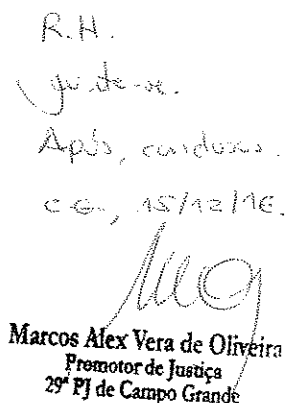 R.H.
junte-se.
Após, conclusos.
C.G., 15/12/16.
Marcos Alex Vera de Oliveira
Promotor de Justiça
29ª PJ de Campo Grande